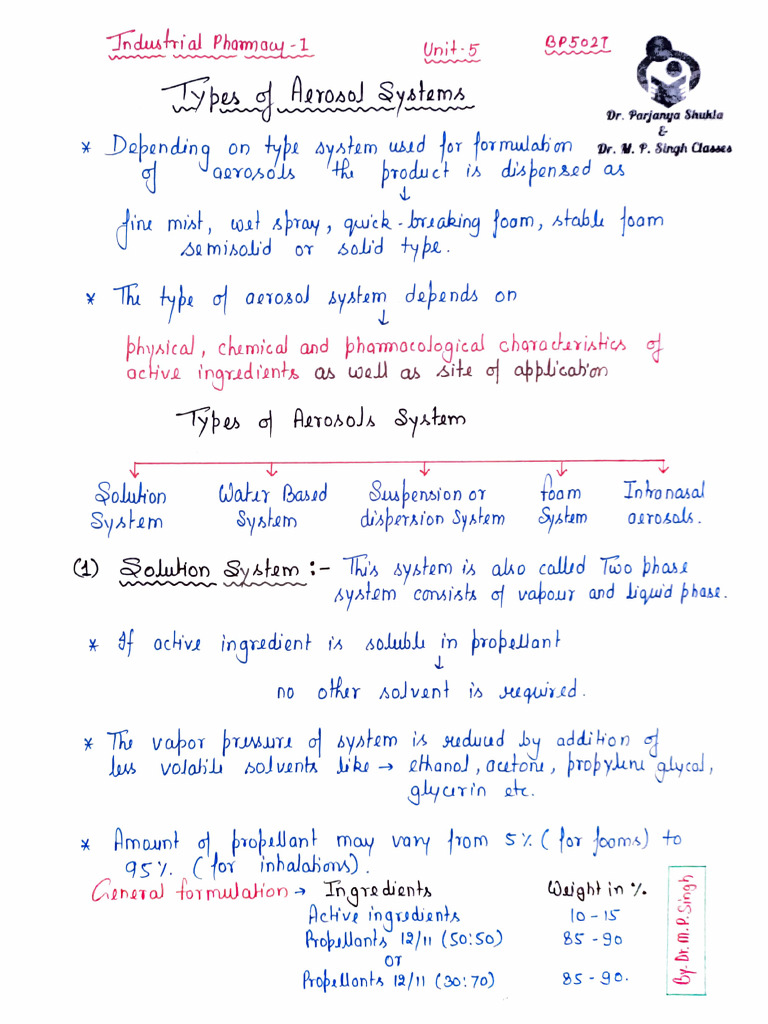 Industrial Pharmacy-1 Unit-5 BP502T
Dr. Parjanya Shukla
&
Dr. M. P. Singh Classes
Types of Aerosol Systems
* Depending on type system used for formulation
of aerosols the product is dispensed as
↓
fine mist, wet spray, quick-breaking foam, stable foam
semisolid or solid type.
* The type of aerosol system depends on
↓
physical, chemical and pharmacological characteristics of
active ingredients as well as site of application
Types of Aerosols System
Solution System
Water Based System
Suspension or dispersion System
foam System
Intranasal aerosols.
(1) Solution System :- This system is also called Two phase
system consists of vapour and liquid phase.
* If active ingredient is soluble in propellant
↓
no other solvent is required.
* The vapor pressure of system is reduced by addition of
less volatile solvents like → ethanol, acetone, propylene glycol,
glycerin etc.
* Amount of propellant may vary from 5% (for foams) to
95%. (for inhalations).
General formulation → Ingredients Weight in %.
Active ingredients 10-15
Propellants 12/11 (50:50) 85-90
or
Propellants 12/11 (30:70) 85-90.
By Dr. M.P. Singh